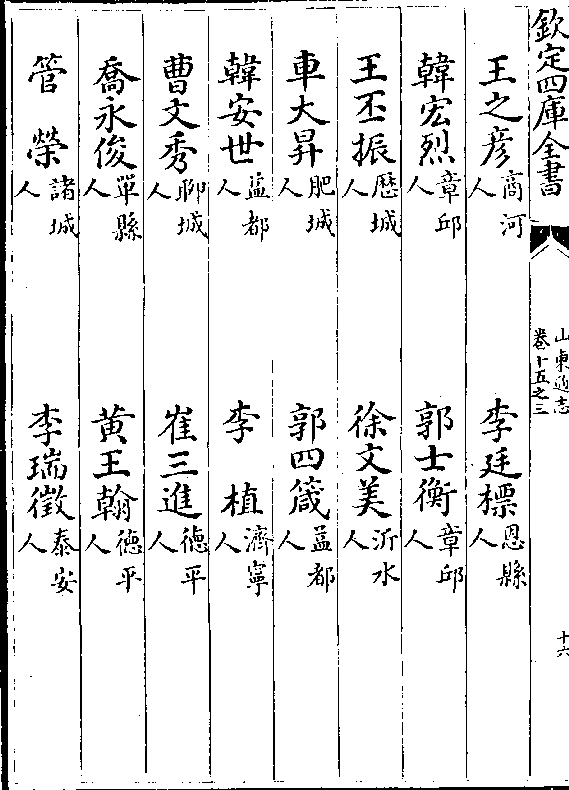 欽定四庫全書
山東通志
卷十五之三
十六
王之彦商河人
李廷標恩縣人
韓宏烈章邱人
郭士衡章邱人
王丕振歷城人
徐文美沂水人
車大昇肥城人
郭四箴益都人
韓安世益都人
李植濟寧人
曹文秀聊城人
崔三進德平人
喬永俊單縣人
黄王翰德平人
管榮諸城人
李瑞徵泰安人